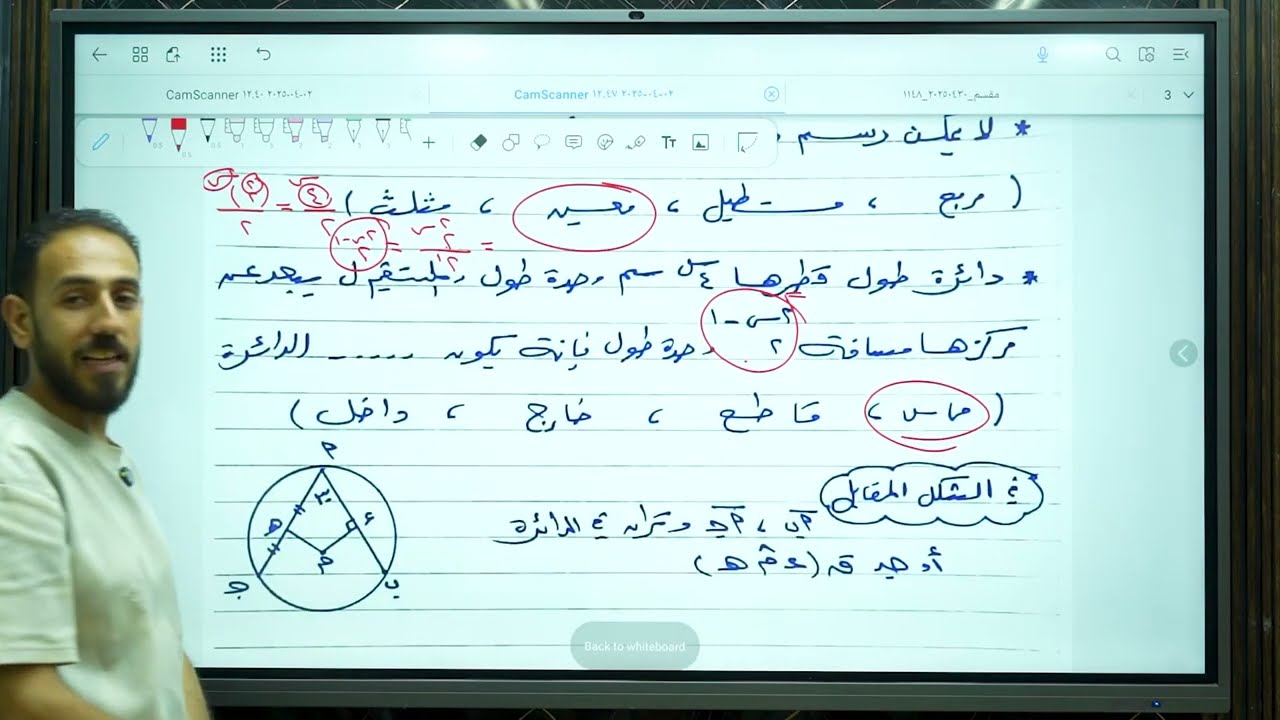 CamScanner ١٢.٤٠ ٢٠٢٥-٠٤-٠٢
CamScanner ١٢.٤٧ ٢٠٢٥-٠٤-٠٢
مقسم_٢٠٢٥٠٤٣٠_١١٤٨
3
Tt
* لا يمكن رسم
( مربع ، مستطيل ، معين ، مثلث )
* دائرة طول قطرها ٤س سم وحدة طول والمستقيم ل يبعد عن
مركزها مسافة ٢س-١ ٢ وحدة طول فإنة يكون ...... الدائرة
( مماس ، قاطع ، خارج ، داخل )
في الشكل المقابل
أب ، أجـ وتران في الدائرة
أوجد قـ (ء م هـ)
أ
هـ
ء
م
جـ
ب
Back to whiteboard